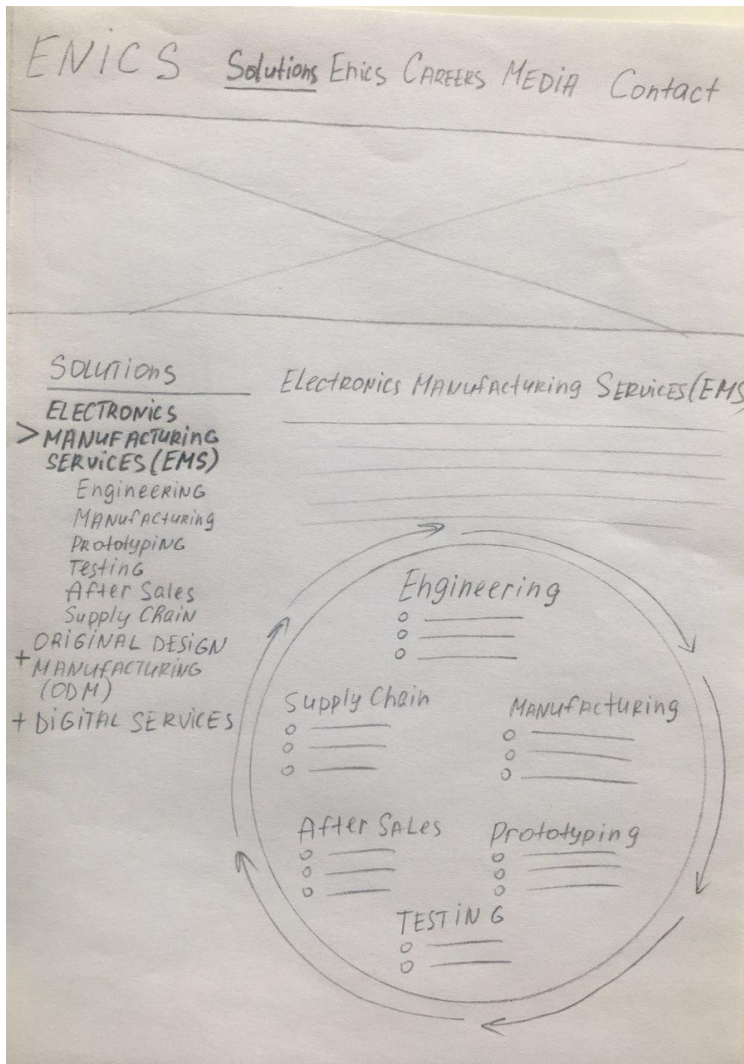 ENICS Solutions Enics CAREERS MEDIA Contact
SOLUTIONS
ELECTRONICS
> MANUFACTURING
SERVICES (EMS)
Engineering
Manufacturing
Prototyping
Testing
After Sales
Supply Chain
ORIGINAL DESIGN
+ MANUFACTURING
(ODM)
+ DIGITAL SERVICES
Electronics Manufacturing Services (EMS)
Engineering
Supply Chain
Manufacturing
After Sales
Prototyping
TESTING